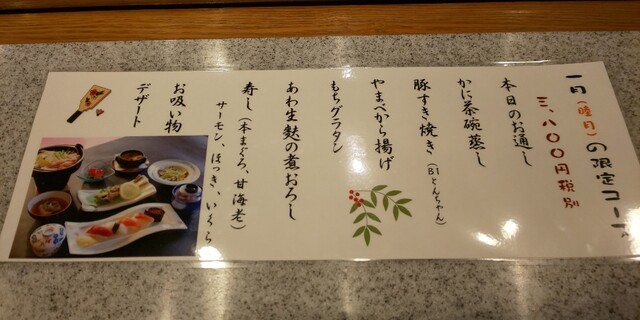 一月(睦月)の限定コース
三、八〇〇円税別
本日のお通し
かに茶碗蒸し
豚すき焼き(B1とんちゃん)
やまべから揚げ
もちグラタン
あわ生麩の煮おろし
寿し(本まぐろ、甘海老)
サーモン、ほっき、いくら
お吸い物
デザート